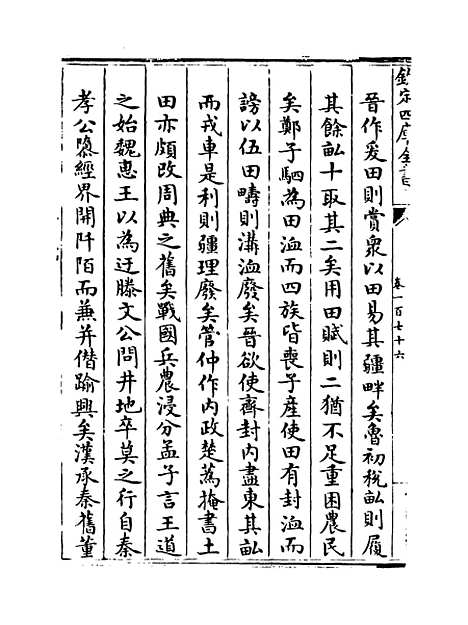 欽定四庫全書
卷一百七十六
晉作爰田則賞衆以田易其疆畔矣魯初稅畝則履
其餘畝十取其二矣用田賦則二猶不足重困農民
矣鄭子駟為田洫而四族皆喪子產使田有封洫而
謗以伍田疇則溝洫廢矣晉欲使齊封內盡東其畝
而戎車是利則疆理廢矣管仲作内政楚蒍掩書土
田亦頗改周典之舊矣戰國兵農浸分孟子言王道
之始魏惠王以為迂滕文公問井地卒莫之行自秦
孝公隳經界開阡陌而兼并僭踰興矣漢承秦舊董